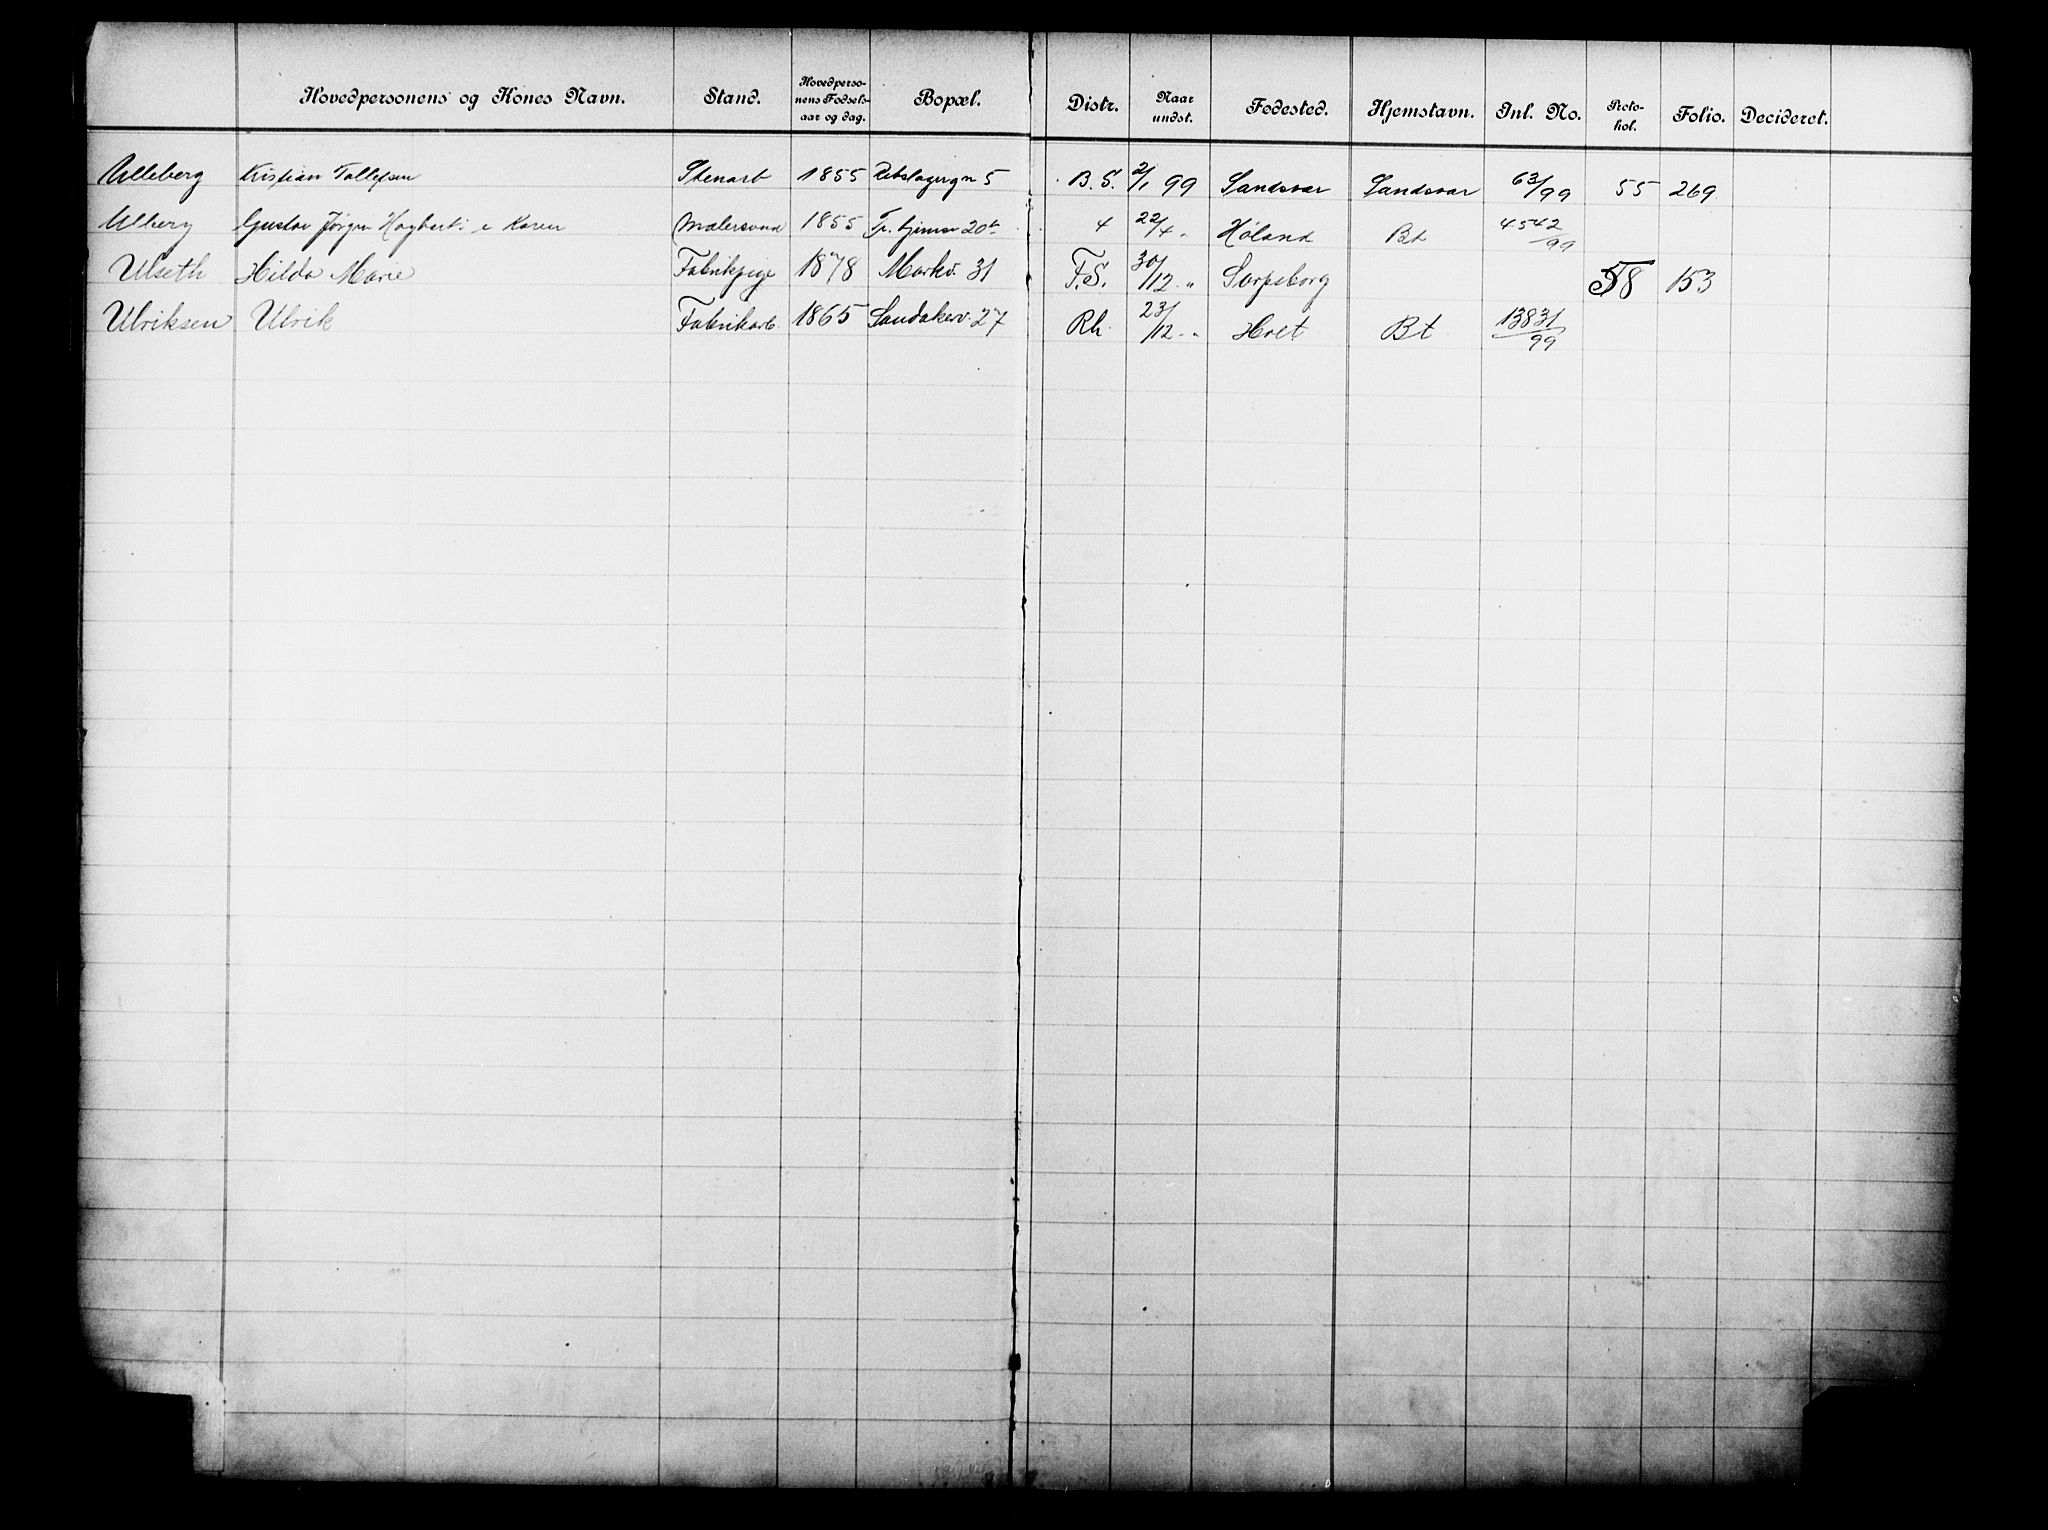 Hovedpersonens og Kones Navn. Stand. Hovedpersonens Fødselsaar og dag. Bopæl. Distr. Naar undst. Fødested. Hjemstavn. Inl. No. Protokol. Folio. Decideret.
Ulleberg Kristian Tollefsen Stenarb 1855 Rebslagergn 5 B. S. 2/1 99 Sandsvær Sandsvær 63/99 55 269
Ulberg Gustav Jørgen Hagbart e Karen Malersvend 1855 20b 4 22/4 „ Høland Bt 4542/99
Ulseth Hilda Marie Fabrikpige 1878 Markv. 31 F. S. 30/12 - „ Sarpsborg 58 153
Ulriksen Ulrik Fabrikarb. 1865 Sandakerv. 27 Rh. 23/12 - „ Holt Bt 13831/99